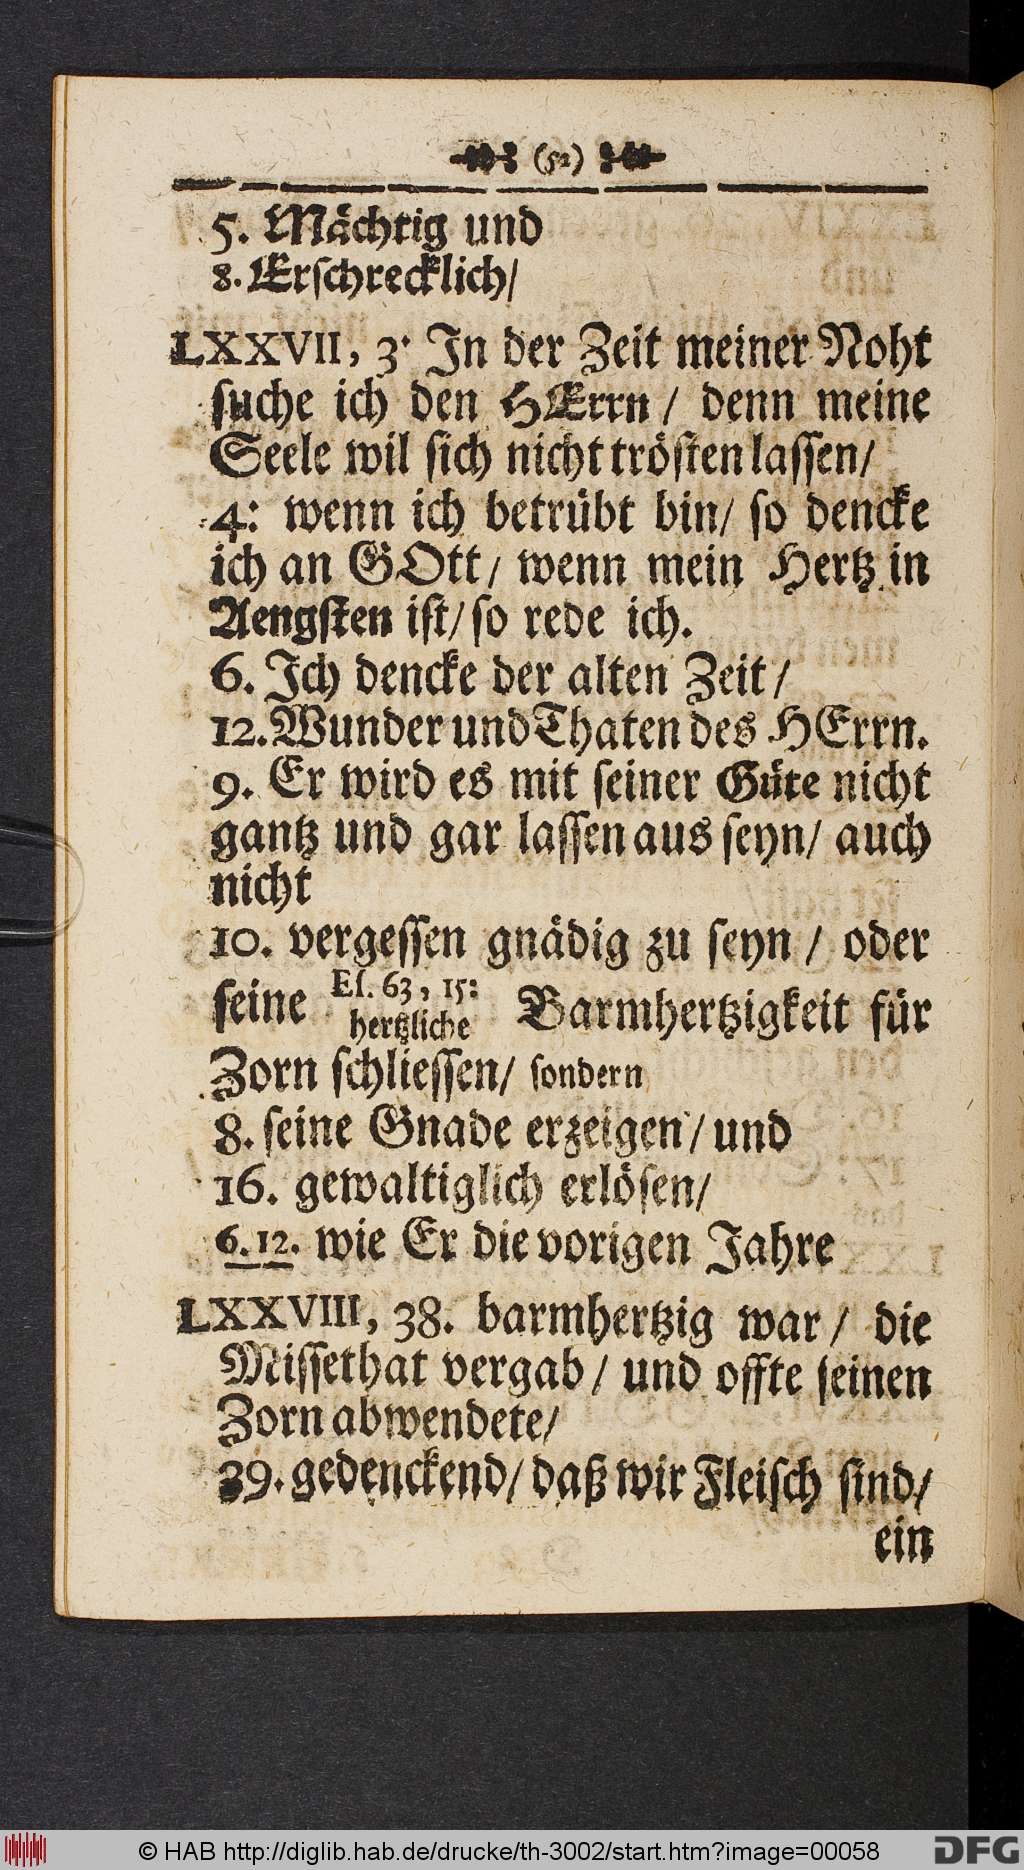 (52)
5. Mächtig und
8. Erſchrecklich/
LXXVII, 3. In der Zeit meiner Noht
ſuche ich den HErrn / denn meine
Seele wil ſich nicht tröſten laſſen/
4: wenn ich betrübt bin/ ſo dencke
ich an GOtt/ wenn mein Hertz in
Aengſten iſt/ ſo rede ich.
6. Ich dencke der alten Zeit/
12. Wunder und Thaten des HErrn.
9. Er wird es mit ſeiner Güte nicht
gantz und gar laſſen aus ſeyn/ auch
nicht
10. vergeſſen gnädig zu ſeyn / oder
ſeine Eſ. 63, 15: hertzliche Barmhertzigkeit für
Zorn ſchlieſſen/ ſondern
8. ſeine Gnade erzeigen/ und
16. gewaltiglich erlöſen/
6. 12. wie Er die vorigen Jahre
LXXVIII, 38. barmhertzig war/ die
Miſſethat vergab/ und offte ſeinen
Zorn abwendete/
39. gedenckend/ daß wir Fleiſch ſind/
ein
© HAB http://diglib.hab.de/drucke/th-3002/start.htm?image=00058
DFG